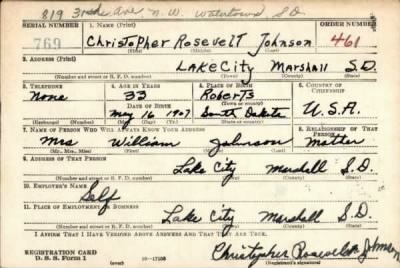 819 3rd Ave, N.W. Watertown S.D.
SERIAL NUMBER 1. NAME (Print) ORDER NUMBER
769 ChrisTopher RosevelT Johnson 461
(First) (Middle) (Last)
2. ADDRESS (Print)
LAKE CiTy MArshAll S.D.
(Number and street or R. F. D. number) (Town) (County) (State)
3. TELEPHONE 4. AGE IN YEARS 5. PLACE OF BIRTH 6. COUNTRY OF CITIZENSHIP
None 33 Roberts
DATE OF BIRTH (Town or county)
May 16 1907 South Dakota U.S.A.
(Exchange) (Number) (Mo.) (Day) (Yr.) (State or country)
7. NAME OF PERSON WHO WILL ALWAYS KNOW YOUR ADDRESS 8. RELATIONSHIP OF THAT PERSON
Mrs William Johnson Mother
(Mr., Mrs., Miss) (First) (Middle) (Last)
9. ADDRESS OF THAT PERSON
Lake City Marshall S.D.
(Number and street or R. F. D. number) (Town) (County) (State)
10. EMPLOYER'S NAME
Self
11. PLACE OF EMPLOYMENT OR BUSINESS
Lake City Marshall S.D.
(Number and street or R. F. D. number) (Town) (County) (State)
I AFFIRM THAT I HAVE VERIFIED ABOVE ANSWERS AND THAT THEY ARE TRUE.
REGISTRATION CARD
D. S. S. Form 1 (over) Christopher Rosevelt Johnson
(Registrant's signature)